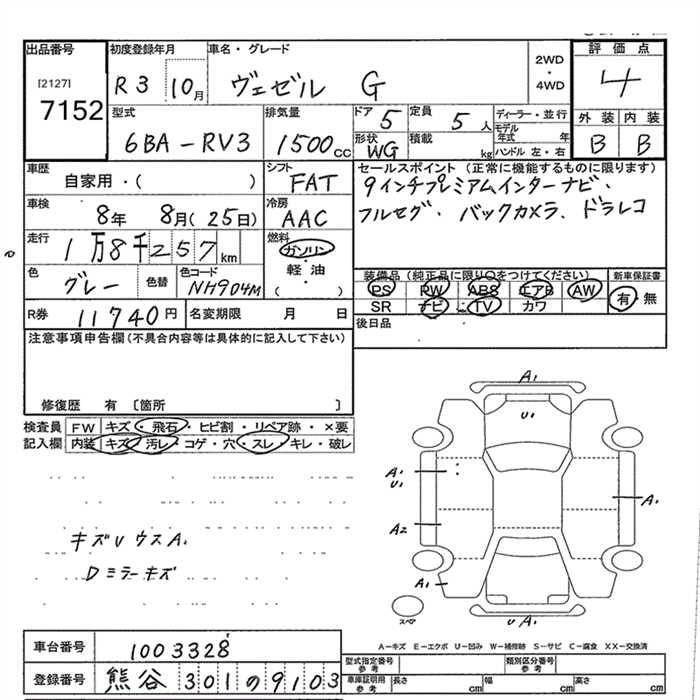 出品番号 初度登録年月 車名・グレード 2WD・4WD 評価点
[2127] 7152 R3 10月 ヴェゼル G 4
型式 排気量 ドア 定員 ディーラー・並行 外装 内装
6BA-RV3 1500cc 5 5人 モデル年式 年 B B
形状 積載 ハンドル 左・右
WG kg
車歴 シフト セールスポイント（正常に機能するものに限ります）
自家用・( ) FAT 9インチプレミアムインターナビ・
車検 冷房 フルセグ・バックカメラ、ドラレコ
8年 8月(25日) AAC
走行 燃料
1万8千257km ガソリン・軽油 ( )
色 色替 色コード 装備品（純正品に限り○をつけてください） 新車保証書
グレー NH904M PS PW ABS エアB AW 有・無
SR ナビ TV カワ
R券 11740円 名変期限 月 日 後日品
注意事項申告欄（不具合内容等は具体的に記入して下さい）
修復歴 有 〔箇所 〕
検査員 FW キズ・飛石・ヒビ割・リペア跡・×要
記入欄 内装 キズ・汚レ・コゲ・穴・スレ・キレ・破レ
A1
U1
A1
U1
A1
A2
キズUウスA1
Dミラーキズ
A1
スペア
UA1
A-キズ E-エクボ U-凹み W-補修跡 S-サビ C-腐食 XX-交換済
車台番号 1003328
型式指定番号 参考 類別区分番号 参考
登録番号 熊谷 301の9103
車庫証明用 参考 長さ cm 幅 cm 高さ cm